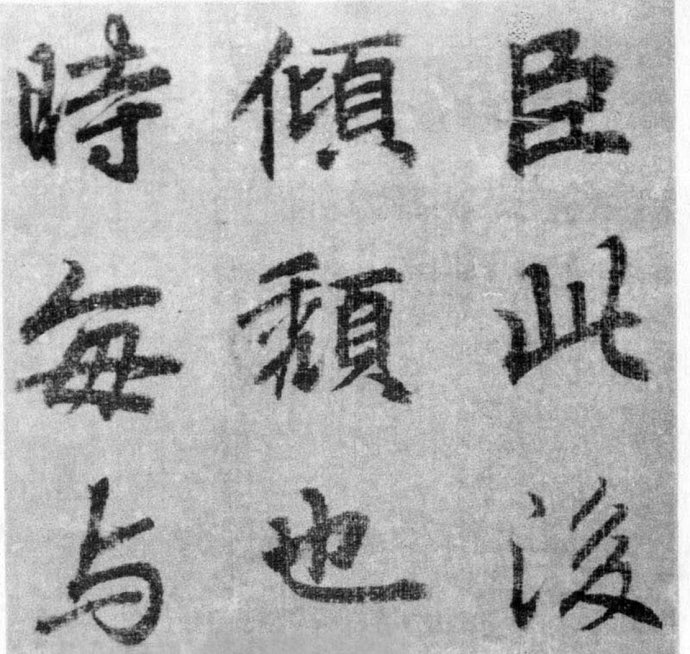 臣此後
傾頹也
時每与